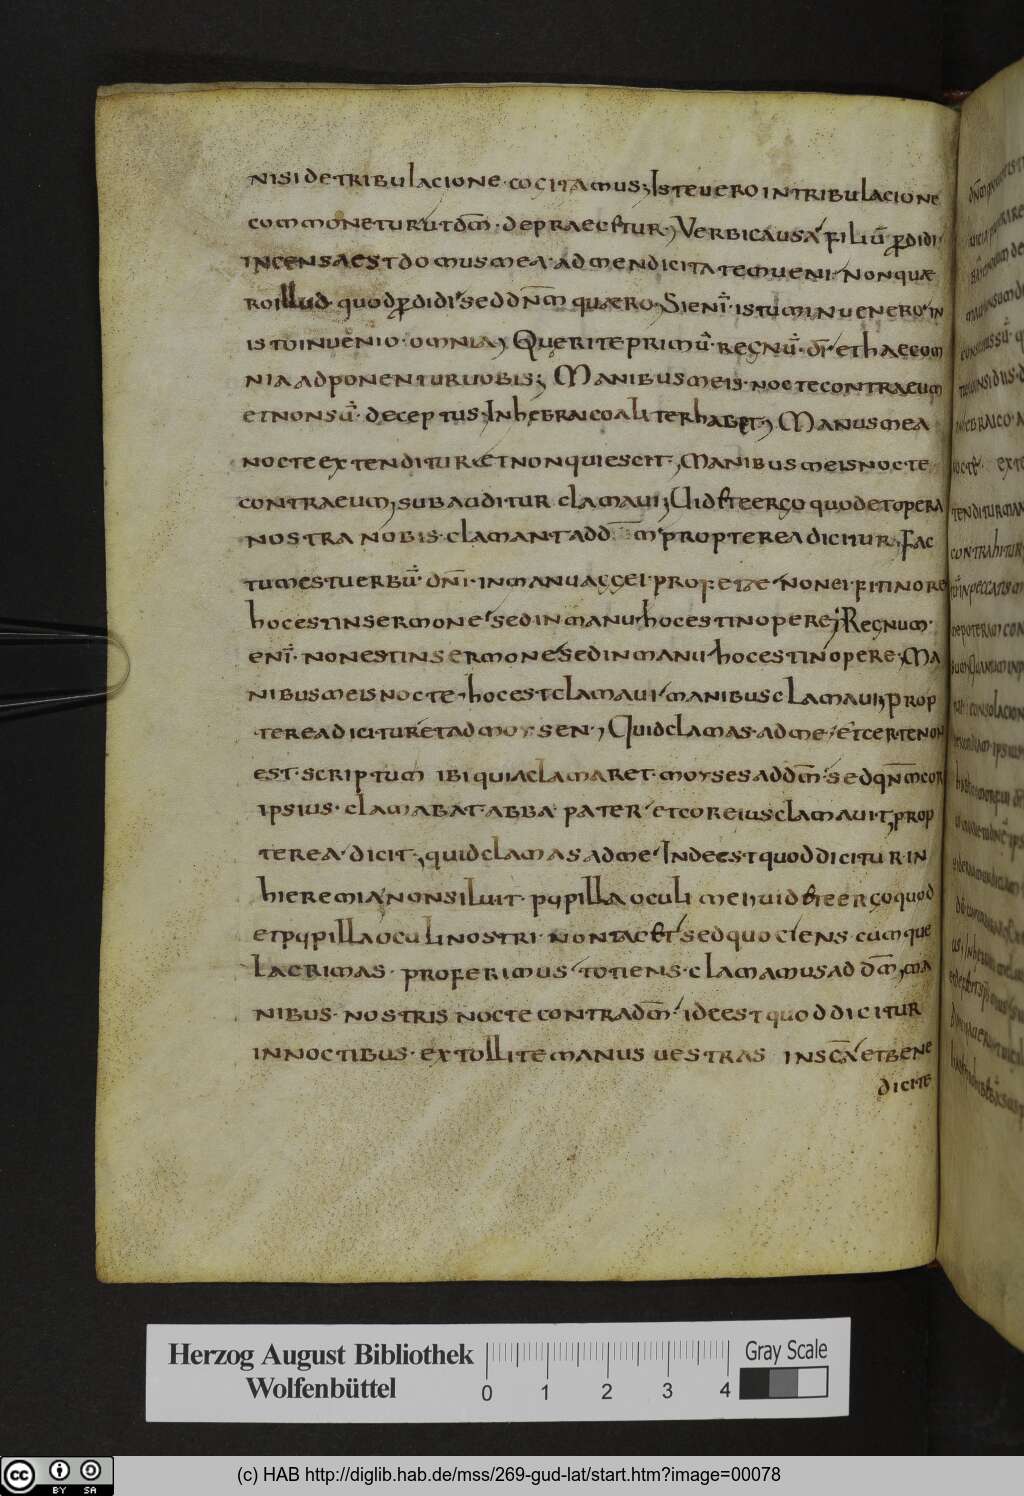 nisi de tribulacione · cogitamus; Iste uero in tribulacione
commonetur ut dm̄ · depraecetur; Verbi causa filiū pdidi ·
incensa est domus mea · ad mendicitatem ueni · non quæ
ro illud · quod pdidi sed dn̄m quæro; Si enī · istum inuenero in
isto inuenio · omnia; Querite primū · regnū · dī · et haec om
nia adponentur uobis; Manibus meis · nocte contra eum
et non sū · deceptus · In hebraico aliter habet; Manus mea
nocte extenditur et non quiescit; Manibus meis nocte
contra eum; subauditur clamaui; Quid est ergo quod et opera
nostra nobis · clamant ad dm̄ propterea dicitur; Fac
tum est uerbū · dnī · in manu aggei · profetae non ei · fit in ore
hoc est in sermone sed in manu hoc est in opere; Regnum ·
enī · non est in sermone sed in manu hoc est in opere; Ma
nibus meis nocte · hoc est clamaui manibus clamaui; prop
terea dicitur et ad moysen; Quid clamas · ad me et certe non
est · scriptum ibi quia clamaret · moyses ad dm̄ sed qn̄m cor
ipsius · clamabat abba pater et cor eius clamauit; prop
terea dicit; quid clamas ad me Inde est quod dicitur in
hieremia non siluit · pupilla oculi mei; uid est ergo quod
et pupilla oculi nostri · non tacet sed quociens · cumque
lacrimas · proferimus totiens · clamamus ad dm̄; ma
nibus · nostris nocte contra dm̄ id est quod dicitur
in noctibus · extollite manus uestras in sc̄a et bene
dicite
Herzog August Bibliothek
Wolfenbüttel
0 1 2 3 4
Gray Scale
cc BY SA
(c) HAB http://diglib.hab.de/mss/269-gud-lat/start.htm?image=00078